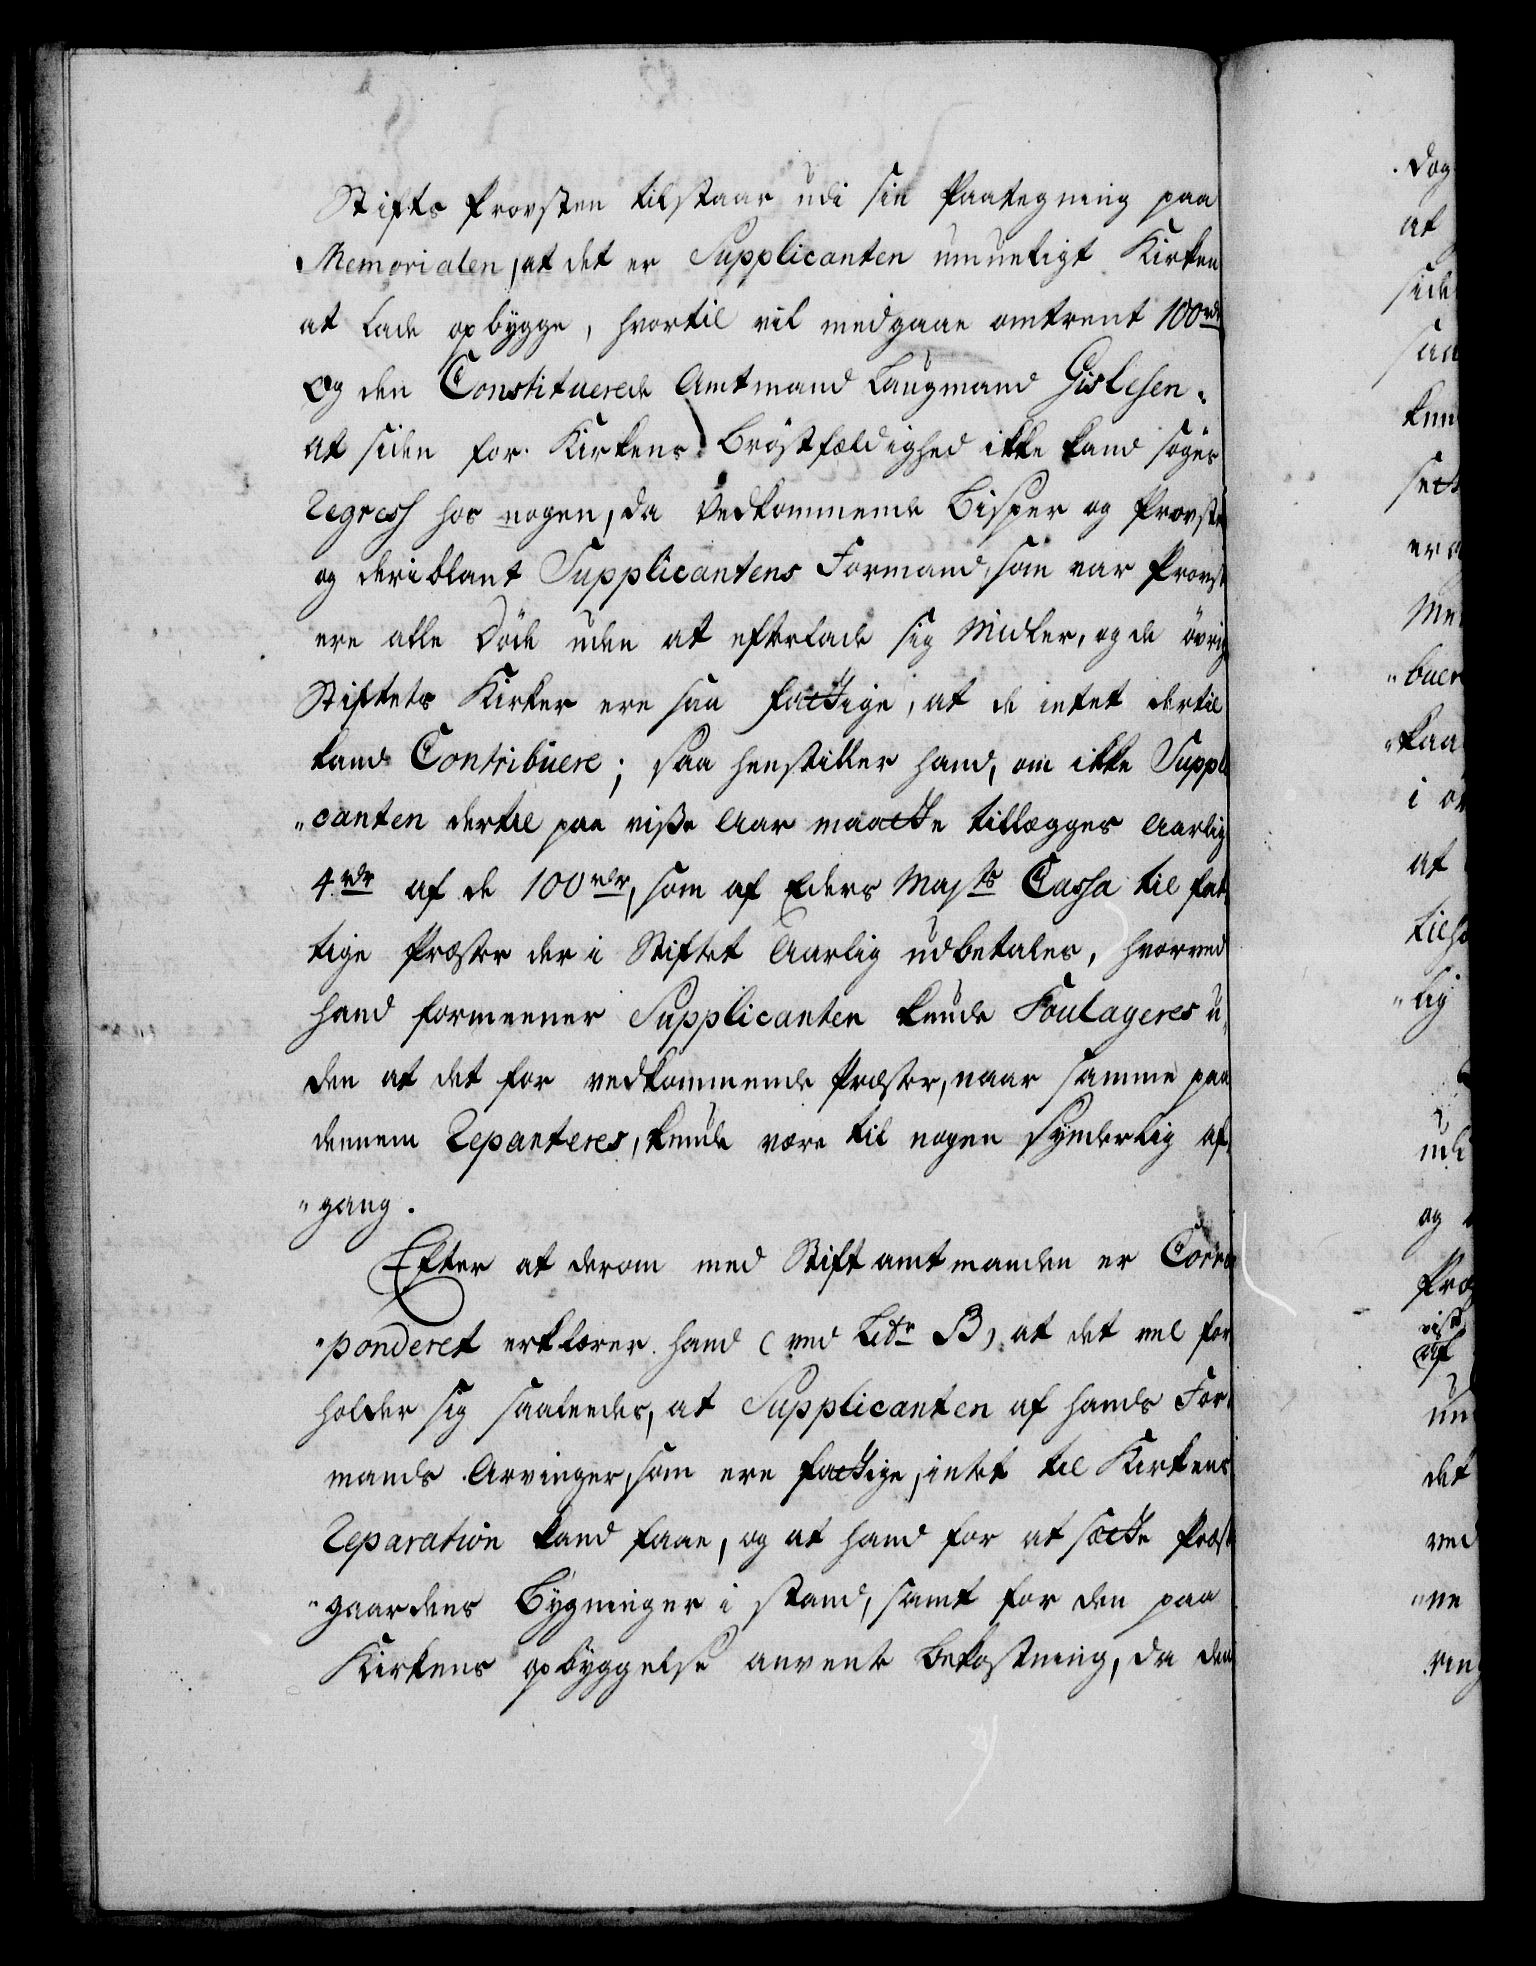 Stifts Provsten tilstaar udi sin Paategning paa
Memorialen, at det er Supplicanten umueligt Kirken
at lade opbygge, hvortil vil medgaae omtrent 100 rdr
Og den Constituerede Amtmand Laugmand Gislesen,
at siden for Kirkens Bröstfældighed ikke kand söges
Regress hos nogen, da Vedkommende Bisper og Provste
og deriblant Supplicantens Formand, som var Provst
ere alle Döde uden at efterlade sig Midler, og de övrige
Stiftets Kirker ere saa fattige, at de intet dertil
kand Contribuere; saa henstiller hand, om ikke Suppli
"canten dertil paa viße Aar maatte tillægges Aarlig
4 rdr af de 100 rdr, som af Eders Majts Cassa til fat
tige Præster der i Stiftet Aarlig udbetales, hvorved
hand formeener Supplicanten kunde Soulageres u,
den at det for vedkommende Præster, naar samme paa
dennem Reparteres, kunde være til nogen synderlig af,
"gang.
Efter at derom med Stiftamtmanden er Corres
"ponderet erklærer hand (ved Litr B) at det vel for
holder sig saaledes, at Supplicanten af hands For,
mands Arvinger, som ere fattige, intet til Kirkens
Reparation kand faae, og at hand for at sætte Præst
"gaardens Bygninger i stand, samt for den paa
Kirkens opbyggelse anvendte Bekostning, da den